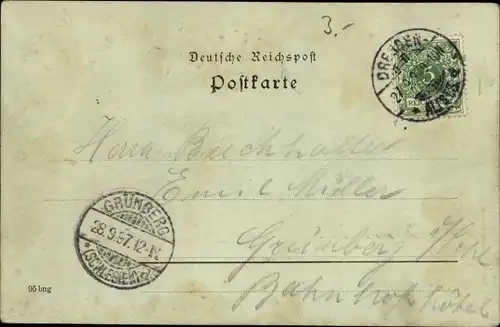 3.-
DRESDEN-
27
5
Deutsche Reichspost
Postkarte
Herrn Buchhalter
Emil Müller
GRÜNBERG
28.9.97.12-1N
*(SCHLESIEN)*
Grünberg i/Schl
95 bmg
Bahnhofshôtel